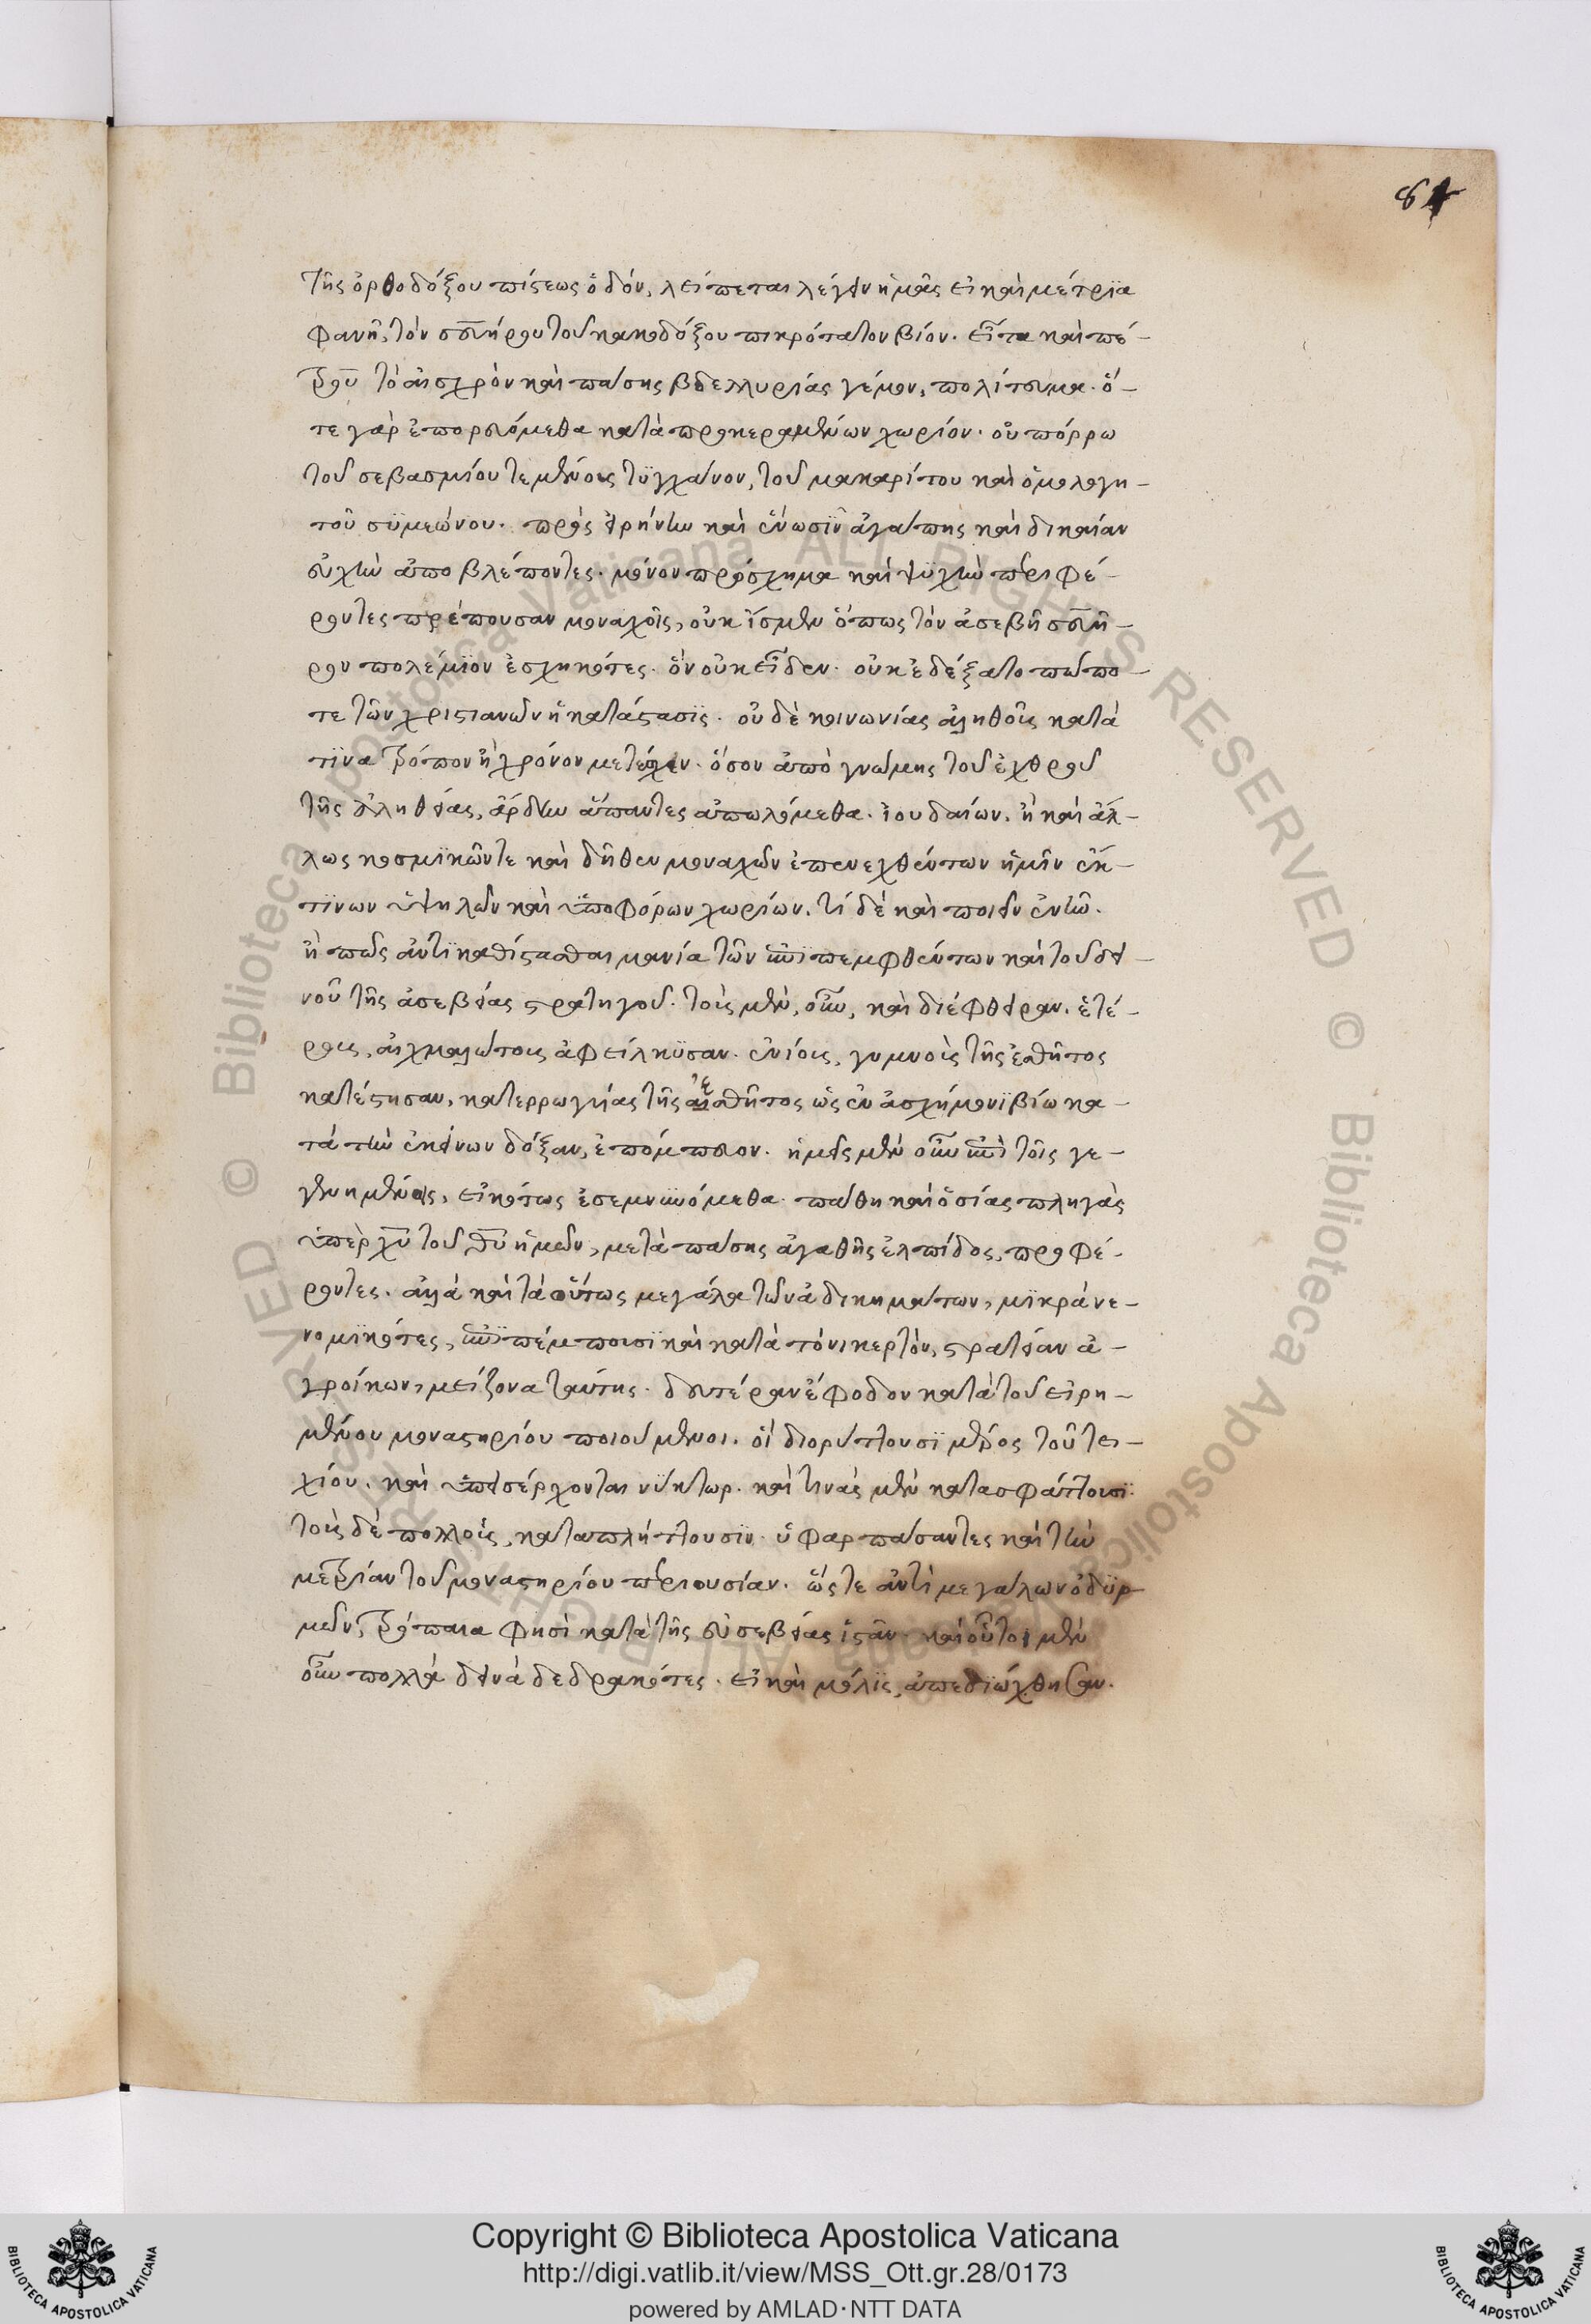 84
τῆς ὀρθοδόξου πίστεως ὁδόν, λείπεται λέγειν ἡμᾶς εἰ καὶ μέτρϊα
φανῆ, τὸν σευήρου τοῦ κακοδόξου πικρότατον βίον. εἶτα καὶ πέ-
τρου τὸ αἰσχρὸν καὶ πάσης βδελλυρίας γέμον, πολίτευμα. ὅ-
τε γὰρ ἐπορευόμεθα κατὰ προκεραμένων χωρίον. οὐ πόρρω
τοῦ σεβασμίου τεμένους τϋγχάνον, τοῦ μακαρίτου καὶ ὁμολογη-
τοῦ σϋμεώνου. πρὸς εἰρήνην καὶ ἕνωσϊν ἀγάπης καὶ δικαίαν
εὐχὴν ἀποβλέποντες. μόνον πρόσχημα καὶ εὐχὴν περιφέ-
ροντες πρέπουσαν μοναχοῖς, οὐκ ἴσμεν ὅπως τὸν ἀσεβῆ σευῆ-
ρον πολέμϊον ἐσχηκότες. ὃν οὐκ εἶδεν. οὐκ ἐδέξατο πώπο-
τε τῶν χριστιανῶν ἡ κατάστασϊς. οὐδὲ κοινωνίας ἀληθοῦς κατὰ
τϊνα τρόπον ἢ χρόνον μετέχειν. ὅσον ἀπὸ γνώμης τοῦ ἐχθροῦ
τῆς ἀληθείας, ἄρδην ἅπαντες ἀπωλόμεθα. ἰουδαίων, ἢ καὶ ἄλ-
λως κοσμϊκῶν τε καὶ δῆθεν μοναχῶν ἐπενεχθέντων ἡμῖν ἔκ
τϊνων ὑψηλῶν καὶ ὑποφόρων χωρίων. τί δὲ καὶ ποιεῖν ἐντῶ.
ἢ πῶς ἀντϊκαθίστασθαι μανία τῶν ἐπϊπεμφθέντων καὶ τοῦ δει-
νοῦ τῆς ἀσεβείας στρατηγοῦ. τοὺς μὲν, οὖν, καὶ διέφθειραν. ἑτέ-
ρους, αἰχμαλώτους ἀφείλκϋσαν. ἐνίους, γυμνοὺς τῆς ἐσθῆτος
κατέστησαν, κατερρωγυίας τῆς αἰσθῆτος ὡς ἐν ἀσχήμονϊ βίω κα-
τὰ τὴν ἐκείνων δόξαν, ἐπόμπευον. ἡμεῖς μὲν οὖν ἐπὶ τοῖς γε-
γενημένοις, εἰκότως ἐσεμνϋνόμεθα. πάθη καὶ ὁσίας πληγὰς
ὑπὲρ χυ τοῦ θυ ἡμῶν, μετὰ πάσης ἀγαθῆς ἐλπίδος, προφέ-
ροντες. ἀλλὰ καὶ τὰ οὕτως μεγάλα τῶν ἀδικημάτων, μϊκρὰ νε-
νομϊκότες, ἐπϊπέμπουσϊ καὶ κατὰ τὸν νικερτὸν, στρατείαν ἀ-
γροίκων, μείζονα ταύτης. δευτέραν ἔφοδον κατὰ τοῦ εἰρη-
μένου μοναστηρίου ποιούμενοι. οἳ διορύττουσϊ μέρος τοῦ τει-
χίου. καὶ ὑπεισέρχονται νύκτωρ. καὶ τινὰς μὲν κατασφάττουσϊ.
τοὺς δὲ πολλοὺς, καταπλήττουσϊν. ὑφαρπάσαντες καὶ τὴν
μετρίαν τοῦ μοναστηρίου περιουσίαν. ὥς τε ἀντὶ μεγάλων ὀδϋρ-
μῶν, τρόπαια φησὶ κατὰ τῆς εὐσεβείας ἱστᾶν. καὶ οὗτοι μὲν
οὖν πολλὰ δεινὰ δεδρακότες. εἰ καὶ μόλϊς, ἀπεδϊώχθησαν.
Copyright © Biblioteca Apostolica Vaticana
http://digi.vatlib.it/view/MSS_Ott.gr.28/0173
powered by AMLAD·NTT DATA